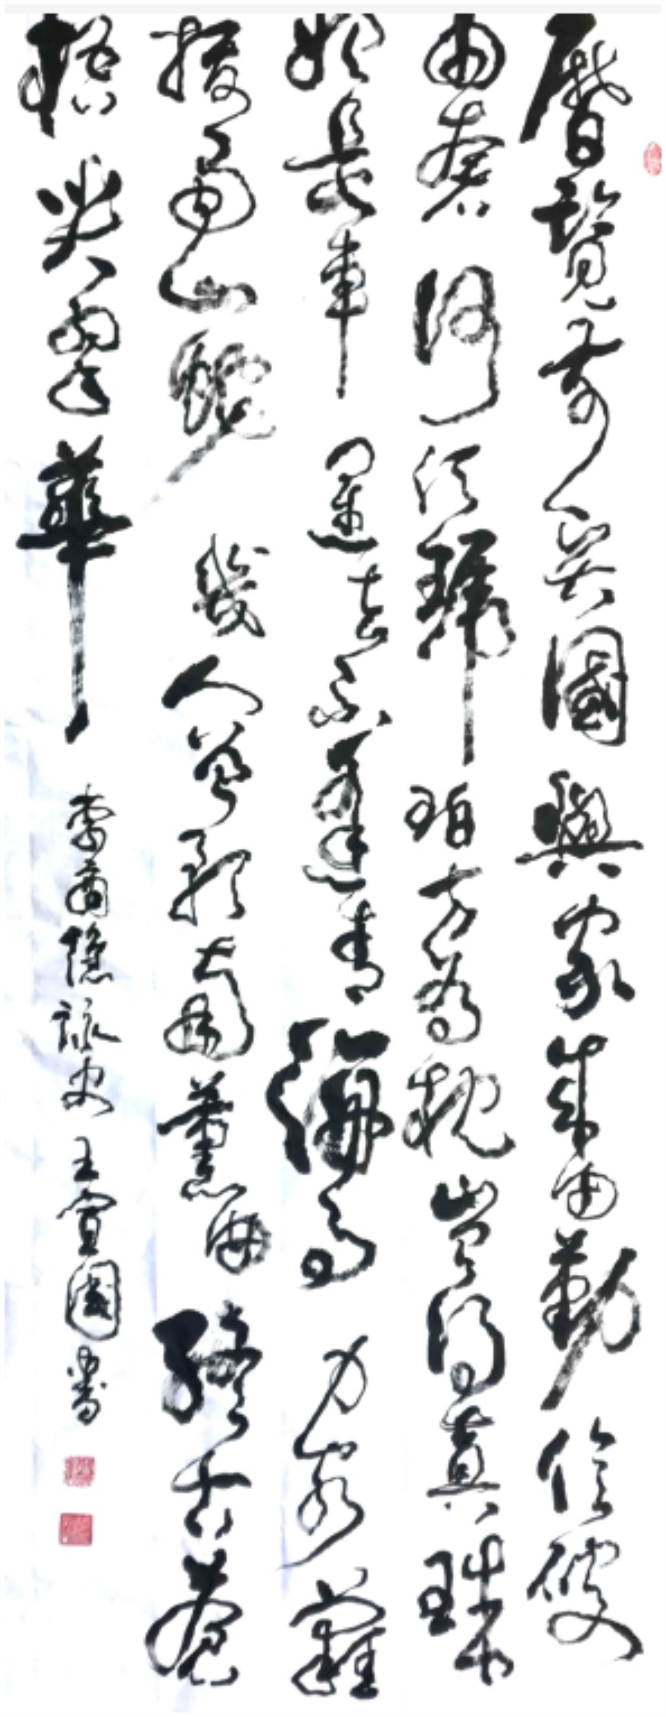 曆覽前賢國與家成由勤儉破
由奢何須琥珀方為枕豈得真珠
始是車運去不逢青海馬力窮難
拔蜀山蛇幾人曾預南薰曲終古蒼
梧哭翠華 李商隱詠史 王宣國書